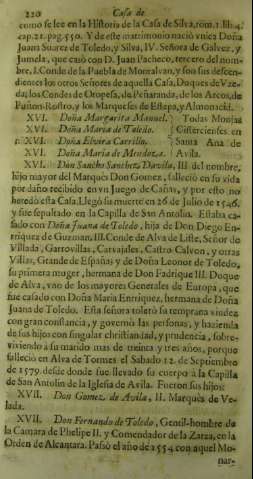 220 Casa de
como se lee en la Historia de la Casa de Silva, tom. 1. lib. 4.
cap. 21. pag. 550. Y de este matrimonio naciò vnica Doña
Juana Suarez de Toledo, y Silva, IV. Señora de Galvez, y
Jumela, que casò con D. Juan Pacheco, tercero del nom-
bre, I. Conde de la Puebla de Montalvan, y son sus descen-
dientes los otros Señores de aquella Casa, Duques de Vze-
da, los Condes de Oropesa, de Peñaranda, de los Arcos, de
Fuen-Rostro, y los Marqueses de Estepa, y Almonacid.
XVI. Doña Margarita Manuel. Todas Monjas
XVI. Doña Maria de Toledo. Cistercienses en
XVI. Doña Elvira Carrillo. Santa Ana de
XVI. Doña Maria de Mendoza. Avila.
XVI. Don Sancho Sanchez Davila, III. del nombre,
hijo mayor del Marquès Don Gomez, falleciò en su vida
por daño recibido en vn Juego de Cañas, y por esto no
heredò esta Casa. Llegò su muerte en 26. de Julio de 1546.
y fue sepultado en la Capilla de San Antolin. Estaba ca-
sado con Doña Juana de Toledo, hija de Don Diego En-
rriquez de Guzman, III. Conde de Alva de Liste, Señor de
Villada, Garrovillas, Carvajales, Castro Calvon, y otras
Villas, Grande de España, y de Doña Leonor de Toledo,
su primera muger, hermana de Don Fadrique III. Duque
de Alva, vno de los mayores Generales de Europa, que
fue casado con Doña Maria Enrriquez, hermana de Doña
Juana de Toledo. Esta señora tolerò su temprana viudez
con gran constancia, y governò las personas, y hazienda
de sus hijos con singular christiandad, y prudencia, sobre-
viviendo à su marido mas de treinta y tres años, porque
falleciò en Alva de Tormes el Sabado 12. de Septiembre
de 1579. desde donde fue llevado su cuerpo à la Capilla
de San Antolin de la Iglesia de Avila. Fueron sus hijos:
XVII. Don Gomez de Avila, II. Marquès de Ve-
lada.
XVII. Don Fernando de Toledo, Gentil-hombre de
la Camara de Phelipe II. y Comendador de la Zarza, en la
Orden de Alcantara. Passò el año de 1554. con aquel Mo-
nar-